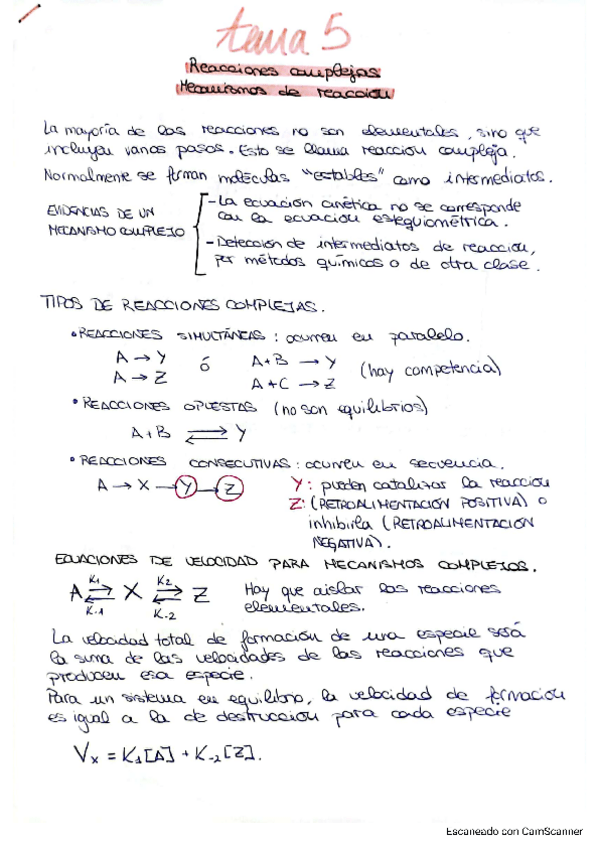 tema 5
Reacciones complejas
Mecanismos de reacción
La mayoría de las reacciones no son elementales, sino que
incluyen varios pasos. Esto se llama reacción compleja.
Normalmente se forman moléculas "estables" como intermediatos.
EVIDENCIAS DE UN
MECANISMO COMPLEJO
- La ecuación cinética no se corresponde
con la ecuación estequiométrica.
- Detección de intermediatos de reacción,
por métodos químicos o de otra clase.
TIPOS DE REACCIONES COMPLEJAS.
• REACCIONES SIMULTÁNEAS: ocurren en paralelo.
A → Y ó A+B → Y (hay competencia)
A → Z A+C → Z
• REACCIONES OPUESTAS (no son equilibrios)
A+B ⇌ Y
• REACCIONES CONSECUTIVAS: ocurren en secuencia.
A → X → Y → Z
Y: pueden catalizar la reacción
Z: (RETROALIMENTACIÓN POSITIVA) o
inhibirla (RETROALIMENTACIÓN
NEGATIVA).
ECUACIONES DE VELOCIDAD PARA MECANISMOS COMPLEJOS.
K1 K2
A ⇌ X ⇌ Z Hay que aislar las reacciones
K-1 K-2 elementales.
La velocidad total de formación de una especie será
la suma de las velocidades de las reacciones que
producen esa especie.
Para un sistema en equilibrio, la velocidad de formación
es igual a la de destrucción para cada especie
Vx = K1[A] + K-2[Z].
Escaneado con CamScanner